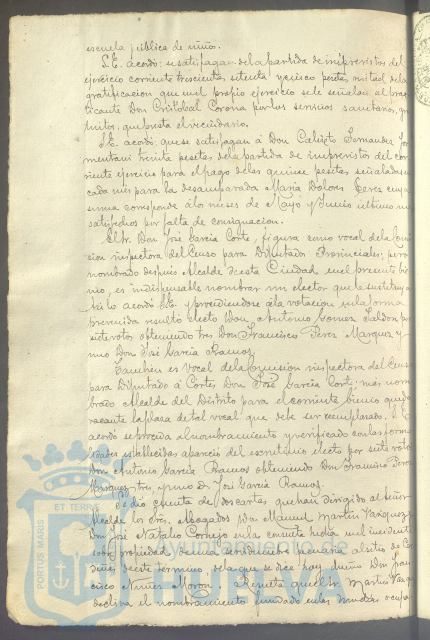 escuela pública de niños.
S.E. acordó: se satisfagan de la partida de imprevistos del
ejercicio corriente trescientas setenta y cinco pesetas mitad de la
gratificación que en el propio ejercicio se le señalan al
ticante Don Cristóbal Corona por los servicios sanitarios, gra
tuitos, que presta el vecindario.
S.E. acordó; que se satisfagan á Don Calixto Fernandez
mentani treinta pesetas de la partida de imprevistos del cor
riente ejercicio para el pago de las quince pesetas señaladas
cada mes para la desamparada María Dolores Perez cuya
suma corresponde á los meses de Mayo y Junio ultimos no
satisfechos por falta de consignacion.
El Sr. Don José García Corte, figura como vocal de la Comi
sion inspectora del Censo para Diputados Provinciales; pero
nombrado despues Alcalde de esta Ciudad en el presente bie
nio, es indispensable nombrar un elector que le sustituya
Así lo acordó S.E. y procediendose á la votacion en la forma
prevenida resultó electo Don Antonio Gomez Saldon por
siete votos obteniendo tres Don Francisco Perez Marquez y
uno Don José García Ramos.
Tambien es vocal de la Comision inspectora del Censo
para Diputado á Córtes Don José García Corte: mas nom
brado Alcalde del Distrito para el corriente bienio queda
vacante la plaza de tal vocal que debe ser reemplazado. S.E.
acordó se proceda al nombramiento y verificado con las forma
lidades establecidas apareció del escrutinio electo por siete votos
Don Antonio García Ramos obteniendo Don Francisco Perez
Marquez tres y uno D. José García Ramos.
Se dió cuenta de dos cartas que han dirigido al Señor
Alcalde los Sres. Abogados Don Manuel Martin Vazquez y
Don José Natalio Cornejo en la consulta hecha en el incidente
sobre propiedad de la servidumbre pecuaria al sitio de
de este termino, de la que se dice hoy dueño Don Fran
cisco Nuñez Moron. Resulta que el Sr. Martin Vazq
declina el nombramiento fundado en las muchas ocupa
PORTUS MARIS ET TERRAE
Ayuntamiento de
HUELVA